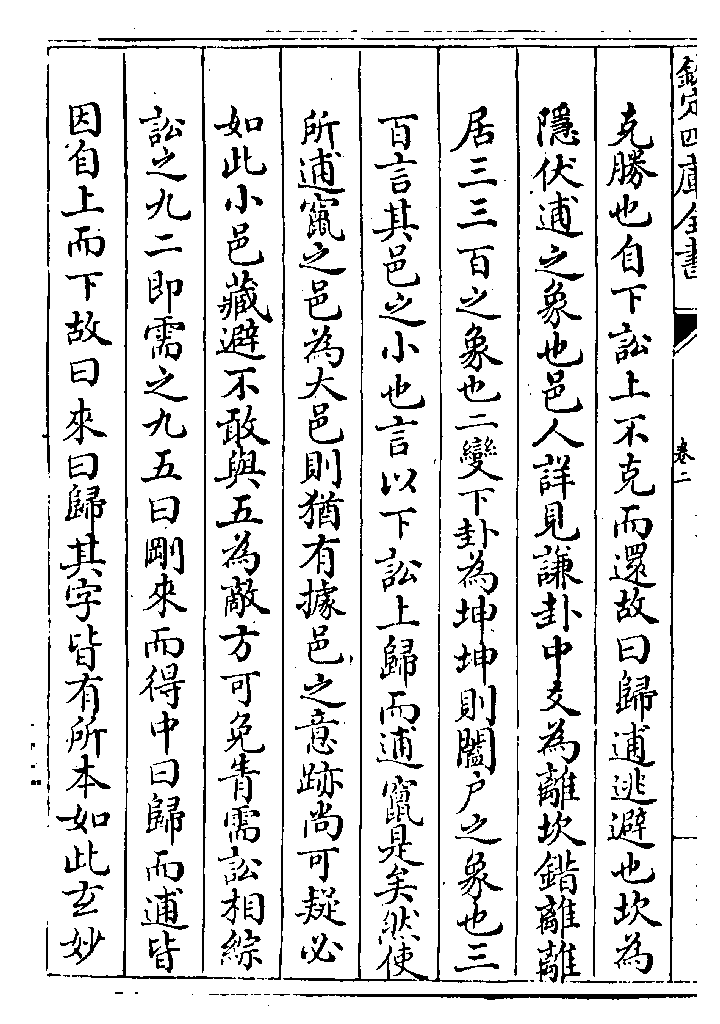 欽定四庫全書
卷二
克勝也自下訟上不克而還故曰歸逋逃避也坎為
隱伏逋之象也邑人詳見謙卦中爻為離坎錯離離
居三三百之象也二變下卦為坤坤則闔户之象也三
百言其邑之小也言以下訟上歸而逋竄是矣然使
所逋竄之邑為大邑則猶有據邑之意跡尚可疑必
如此小邑藏避不敢與五為敵方可免眚需訟相綜
訟之九二即需之九五曰剛來而得中曰歸而逋皆
因自上而下故曰來曰歸其字皆有所本如此玄妙